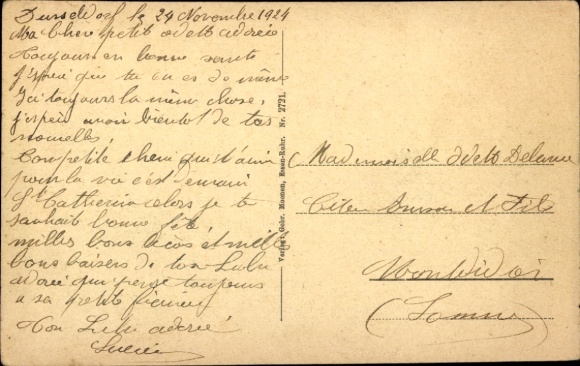 Dusseldorf le 24 Novembre 1924
Ma Cher petit odette adorée
Toujours en bonne santé
j'espère que tu en es de même
Ici toujours la même chose,
j'espère avoir bientot de tes
nouvelles,
Ton petite cheri qui t'aime
pour la vie c'est demain
St Catherine alors je te
souhait bonne fête,
milles bons et mille
bons baisers de ton Lulu
adoré qui pense toujours
a sa petit
Ton Lulu adoré
Lucien
Verlag: Gebr. Moemen, Essen-Ruhr. Nr. 2721.
Mademoiselle Odette
Citer et Fils
Montdidier
(Somme)